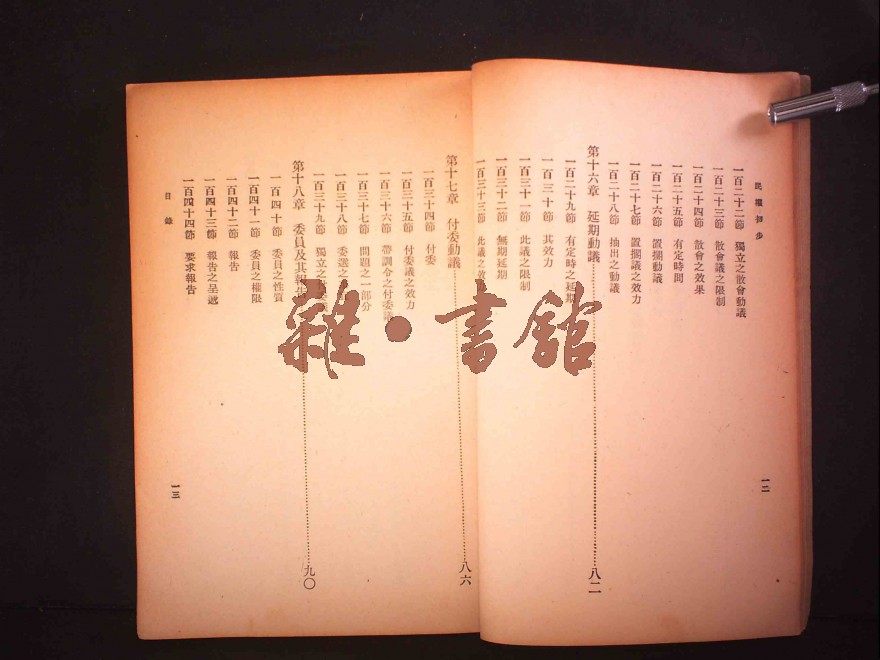 民權初步
一百二十二節 獨立之散會動議
一百二十三節 散會議之限制
一百二十四節 散會之效果
一百二十五節 有定時間
一百二十六節 置擱動議
一百二十七節 置擱議之效力
一百二十八節 抽出之動議
第十六章 延期動議……八二
一百二十九節 有定時之延期
一百三十節 其效力
一百三十一節 此議之限制
一百三十二節 無期延期
一百三十三節 此議之效
一二
第十七章 付委動議……八六
一百三十四節 付委
一百三十五節 付委議之效力
一百三十六節 帶訓令之付委議
一百三十七節 問題之一部分
一百三十八節 委選之
一百三十九節 獨立之
第十八章 委員及其報告……九〇
一百四十節 委員之性質
一百四十一節 委員之權限
一百四十二節 報告
一百四十三節 報告之呈遞
一百四十四節 要求報告
目錄
一三
雜·書館